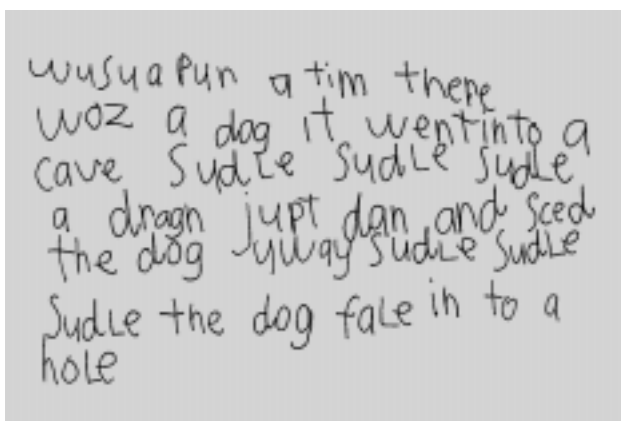 wusuapun a tim there
woz a dog it wentinto a
cave Sudle Sudle Sudle
a dragn jupt dan and Sced
the dog yway Sudle Sudle
Sudle the dog fale in to a
hole